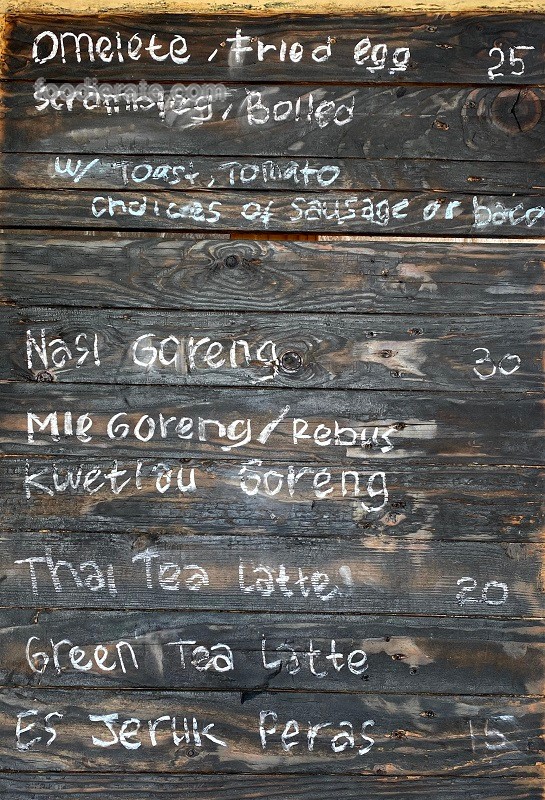 Omelete, Fried egg 25
foodierate.com
Scrambleg, Boiled
w/ Toast, Tomato
choices of sausage or baco
Nasi Goreng 30
Mie Goreng/Rebus
Kwetiau Goreng
Thai Tea Latte 20
Green Tea Latte
Es Jeruk Peras 15